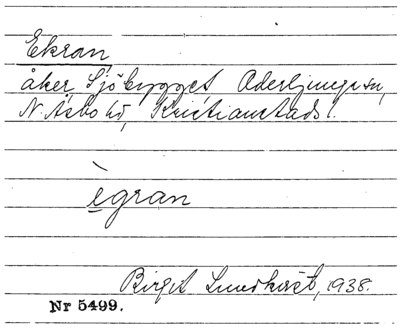 Ekran
åker, Sjöbygget Aderljunga sn,
N. Åsbo hd, Kristianstads l.
ègran
Birgit Lundkvist, 1938.
Nr 5499.